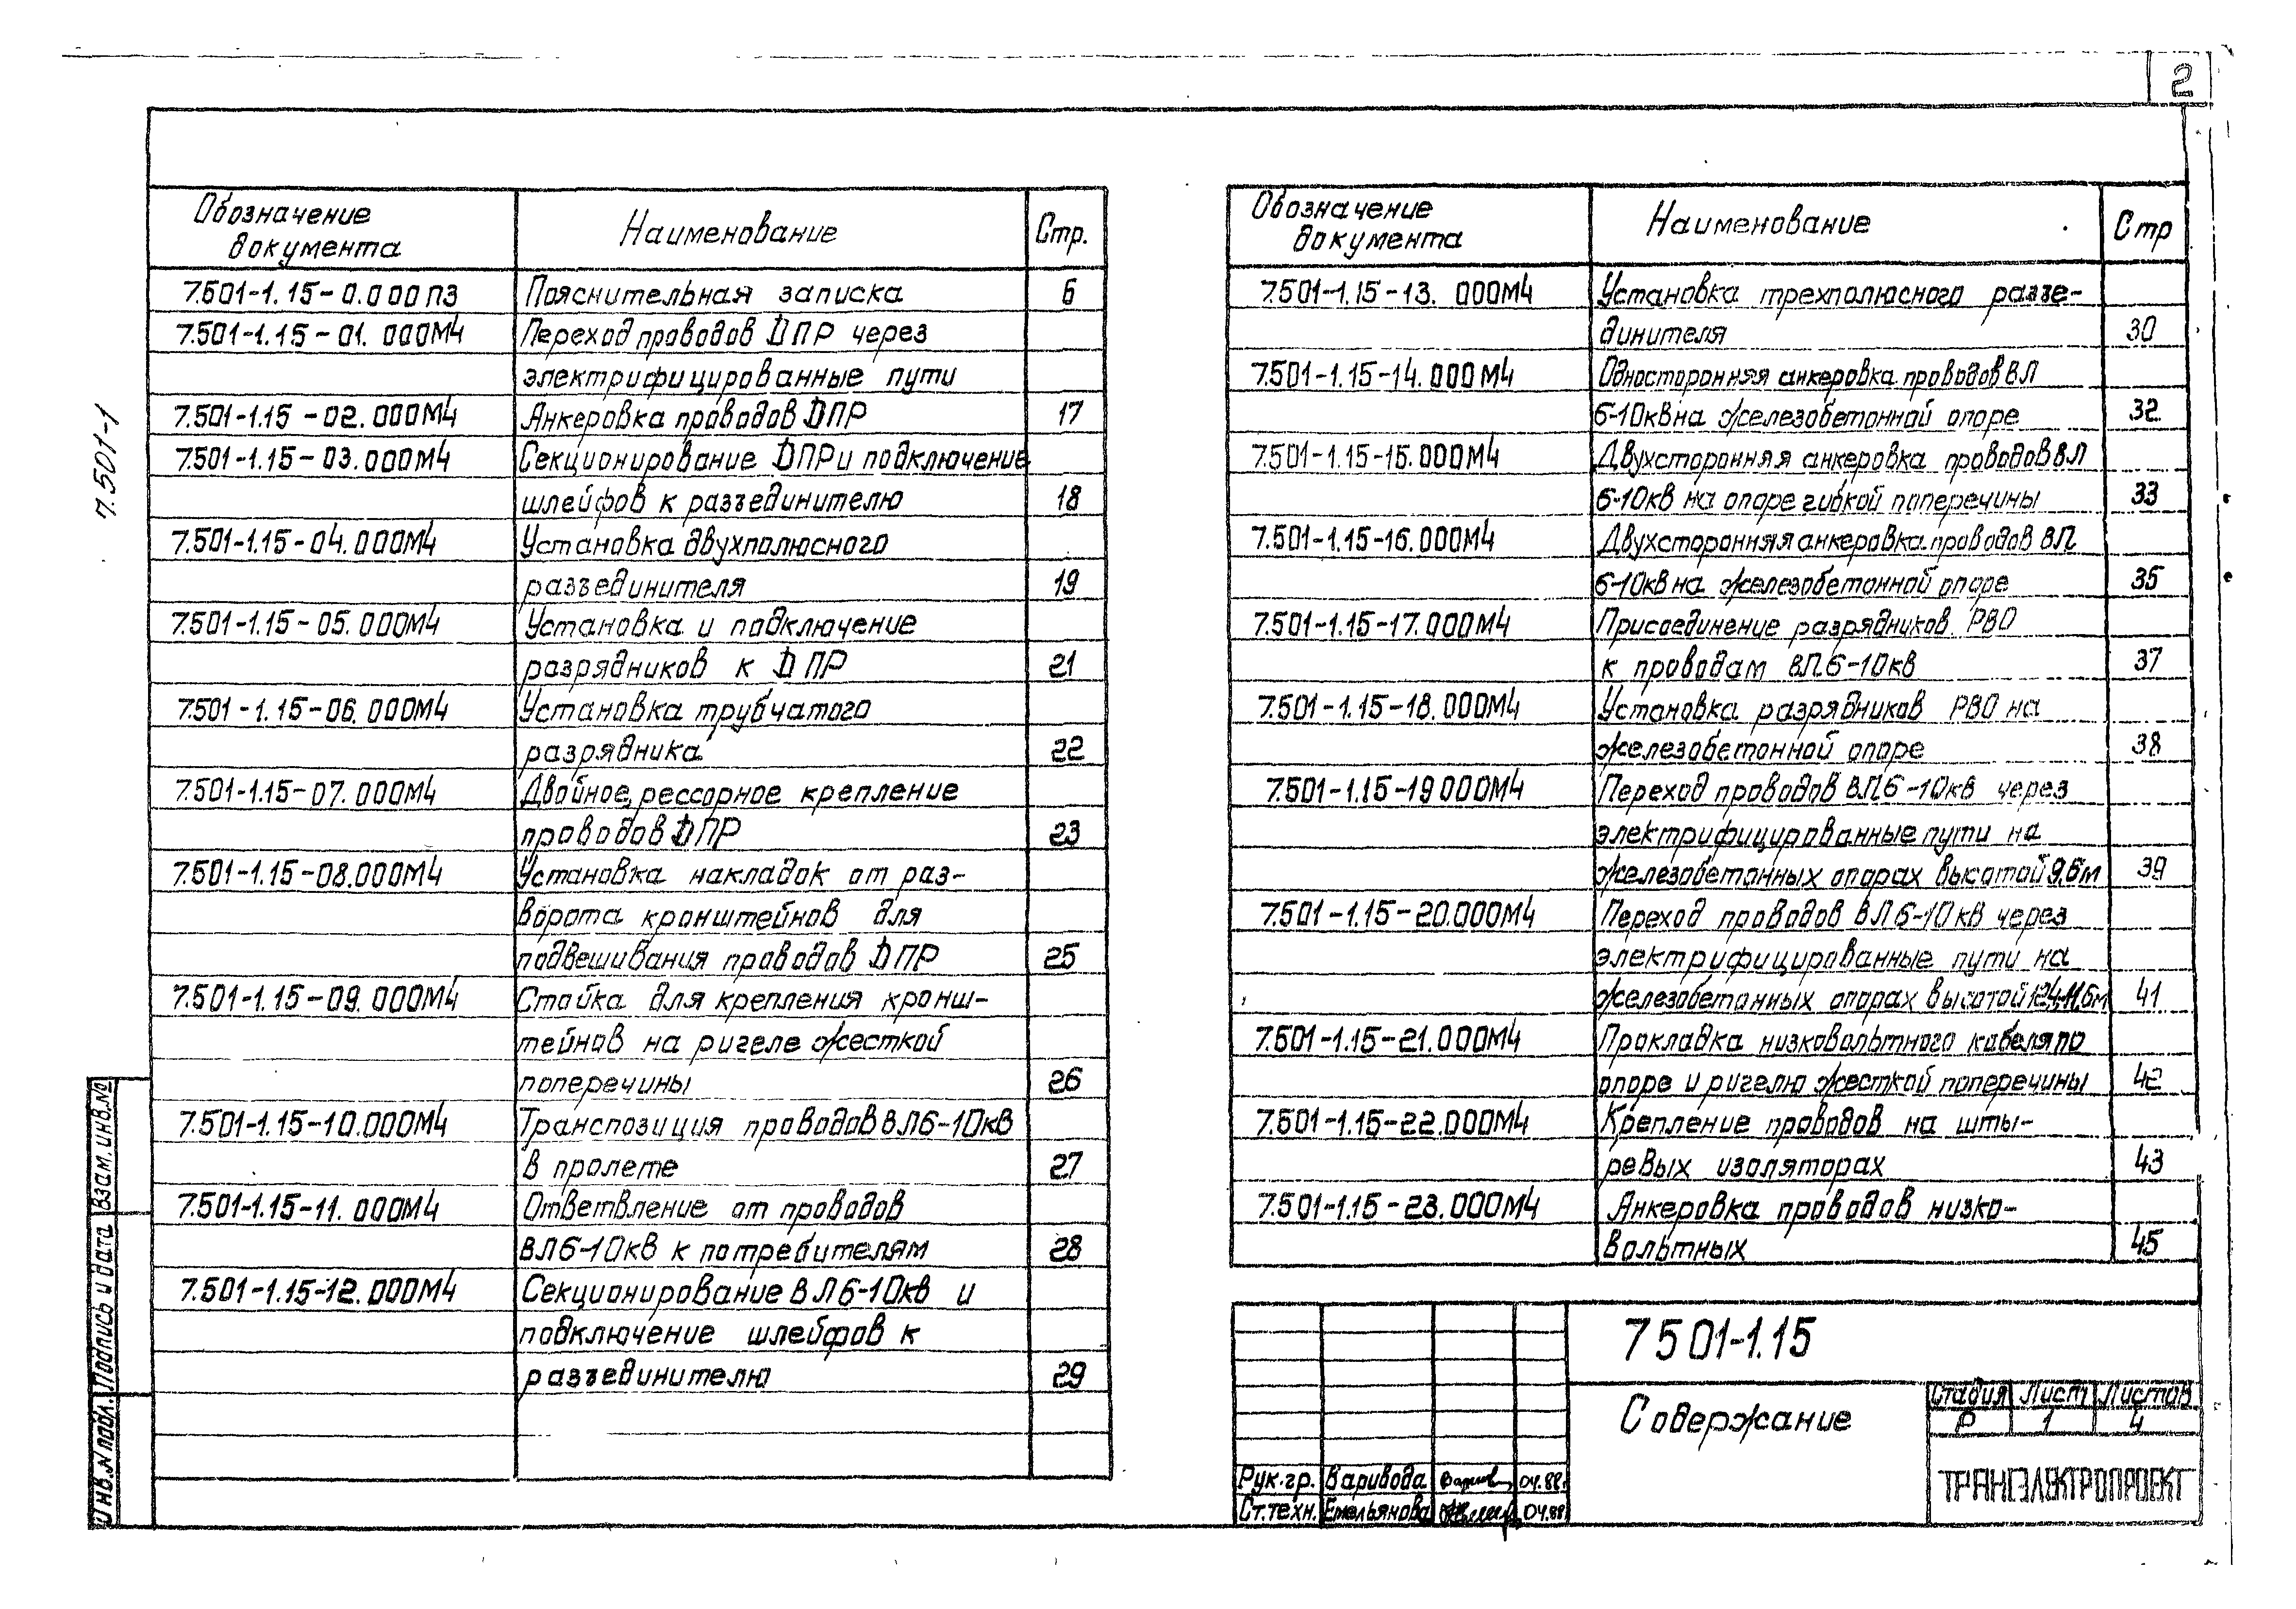 2
7.501-1
Обозначение документа Наименование Стр.
7.501-1.15-0.000ПЗ Пояснительная записка 6
7.501-1.15-01.000М4 Переход проводов ДПР через
электрифицированные пути
7.501-1.15-02.000М4 Анкеровка проводов ДПР 17
7.501-1.15-03.000М4 Секционирование ДПР и подключение
шлейфов к разъединителю 18
7.501-1.15-04.000М4 Установка двухполюсного
разъединителя 19
7.501-1.15-05.000М4 Установка и подключение
разрядников к ДПР 21
7.501-1.15-06.000М4 Установка трубчатого
разрядника 22
7.501-1.15-07.000М4 Двойное, рессорное крепление
проводов ДПР 23
7.501-1.15-08.000М4 Установка накладок от раз-
ворота кронштейнов для
подвешивания проводов ДПР 25
7.501-1.15-09.000М4 Стойка для крепления кронш-
тейнов на ригеле жесткой
поперечины 26
7.501-1.15-10.000М4 Транспозиция проводов ВЛ6-10кв
в пролете 27
7.501-1.15-11.000М4 Ответвление от проводов
ВЛ6-10кв к потребителям 28
7.501-1.15-12.000М4 Секционирование ВЛ6-10кв и
подключение шлейфов к
разъединителю 29
Обозначение документа Наименование Стр
7.501-1.15-13.000М4 Установка трехполюсного разъе-
динителя 30
7.501-1.15-14.000М4 Односторонняя анкеровка проводов ВЛ
6-10кв на железобетонной опоре 32
7.501-1.15-15.000М4 Двухсторонняя анкеровка проводов ВЛ
6-10кв на опоре гибкой поперечины 33
7.501-1.15-16.000М4 Двухсторонняя анкеровка проводов ВЛ
6-10кв на железобетонной опоре 35
7.501-1.15-17.000М4 Присоединение разрядников РВО
к проводам ВЛ6-10кв 37
7.501-1.15-18.000М4 Установка разрядников РВО на
железобетонной опоре 38
7.501-1.15-19 000М4 Переход проводов ВЛ6-10кв через
электрифицированные пути на
железобетонных опорах высотой 9,6м 39
7.501-1.15-20.000М4 Переход проводов ВЛ6-10кв через
электрифицированные пути на
железобетонных опорах высотой 41
7.501-1.15-21.000М4 Прокладка низковольтного кабеля по
опоре и ригелю жесткой поперечины 42
7.501-1.15-22.000М4 Крепление проводов на шты-
ревых изоляторах 43
7.501-1.15-23.000М4 Анкеровка проводов низко-
вольтных 45
Инв.N подл. Подпись и дата Взам.инв.№
7 501-1.15
Содержание
Стадия Лист Листов
Р 1 4
ТРАНСЭЛЕКТРОПРОЕКТ
Рук.гр. Варивода 04.88г
Ст.техн. Емельянова 04.88